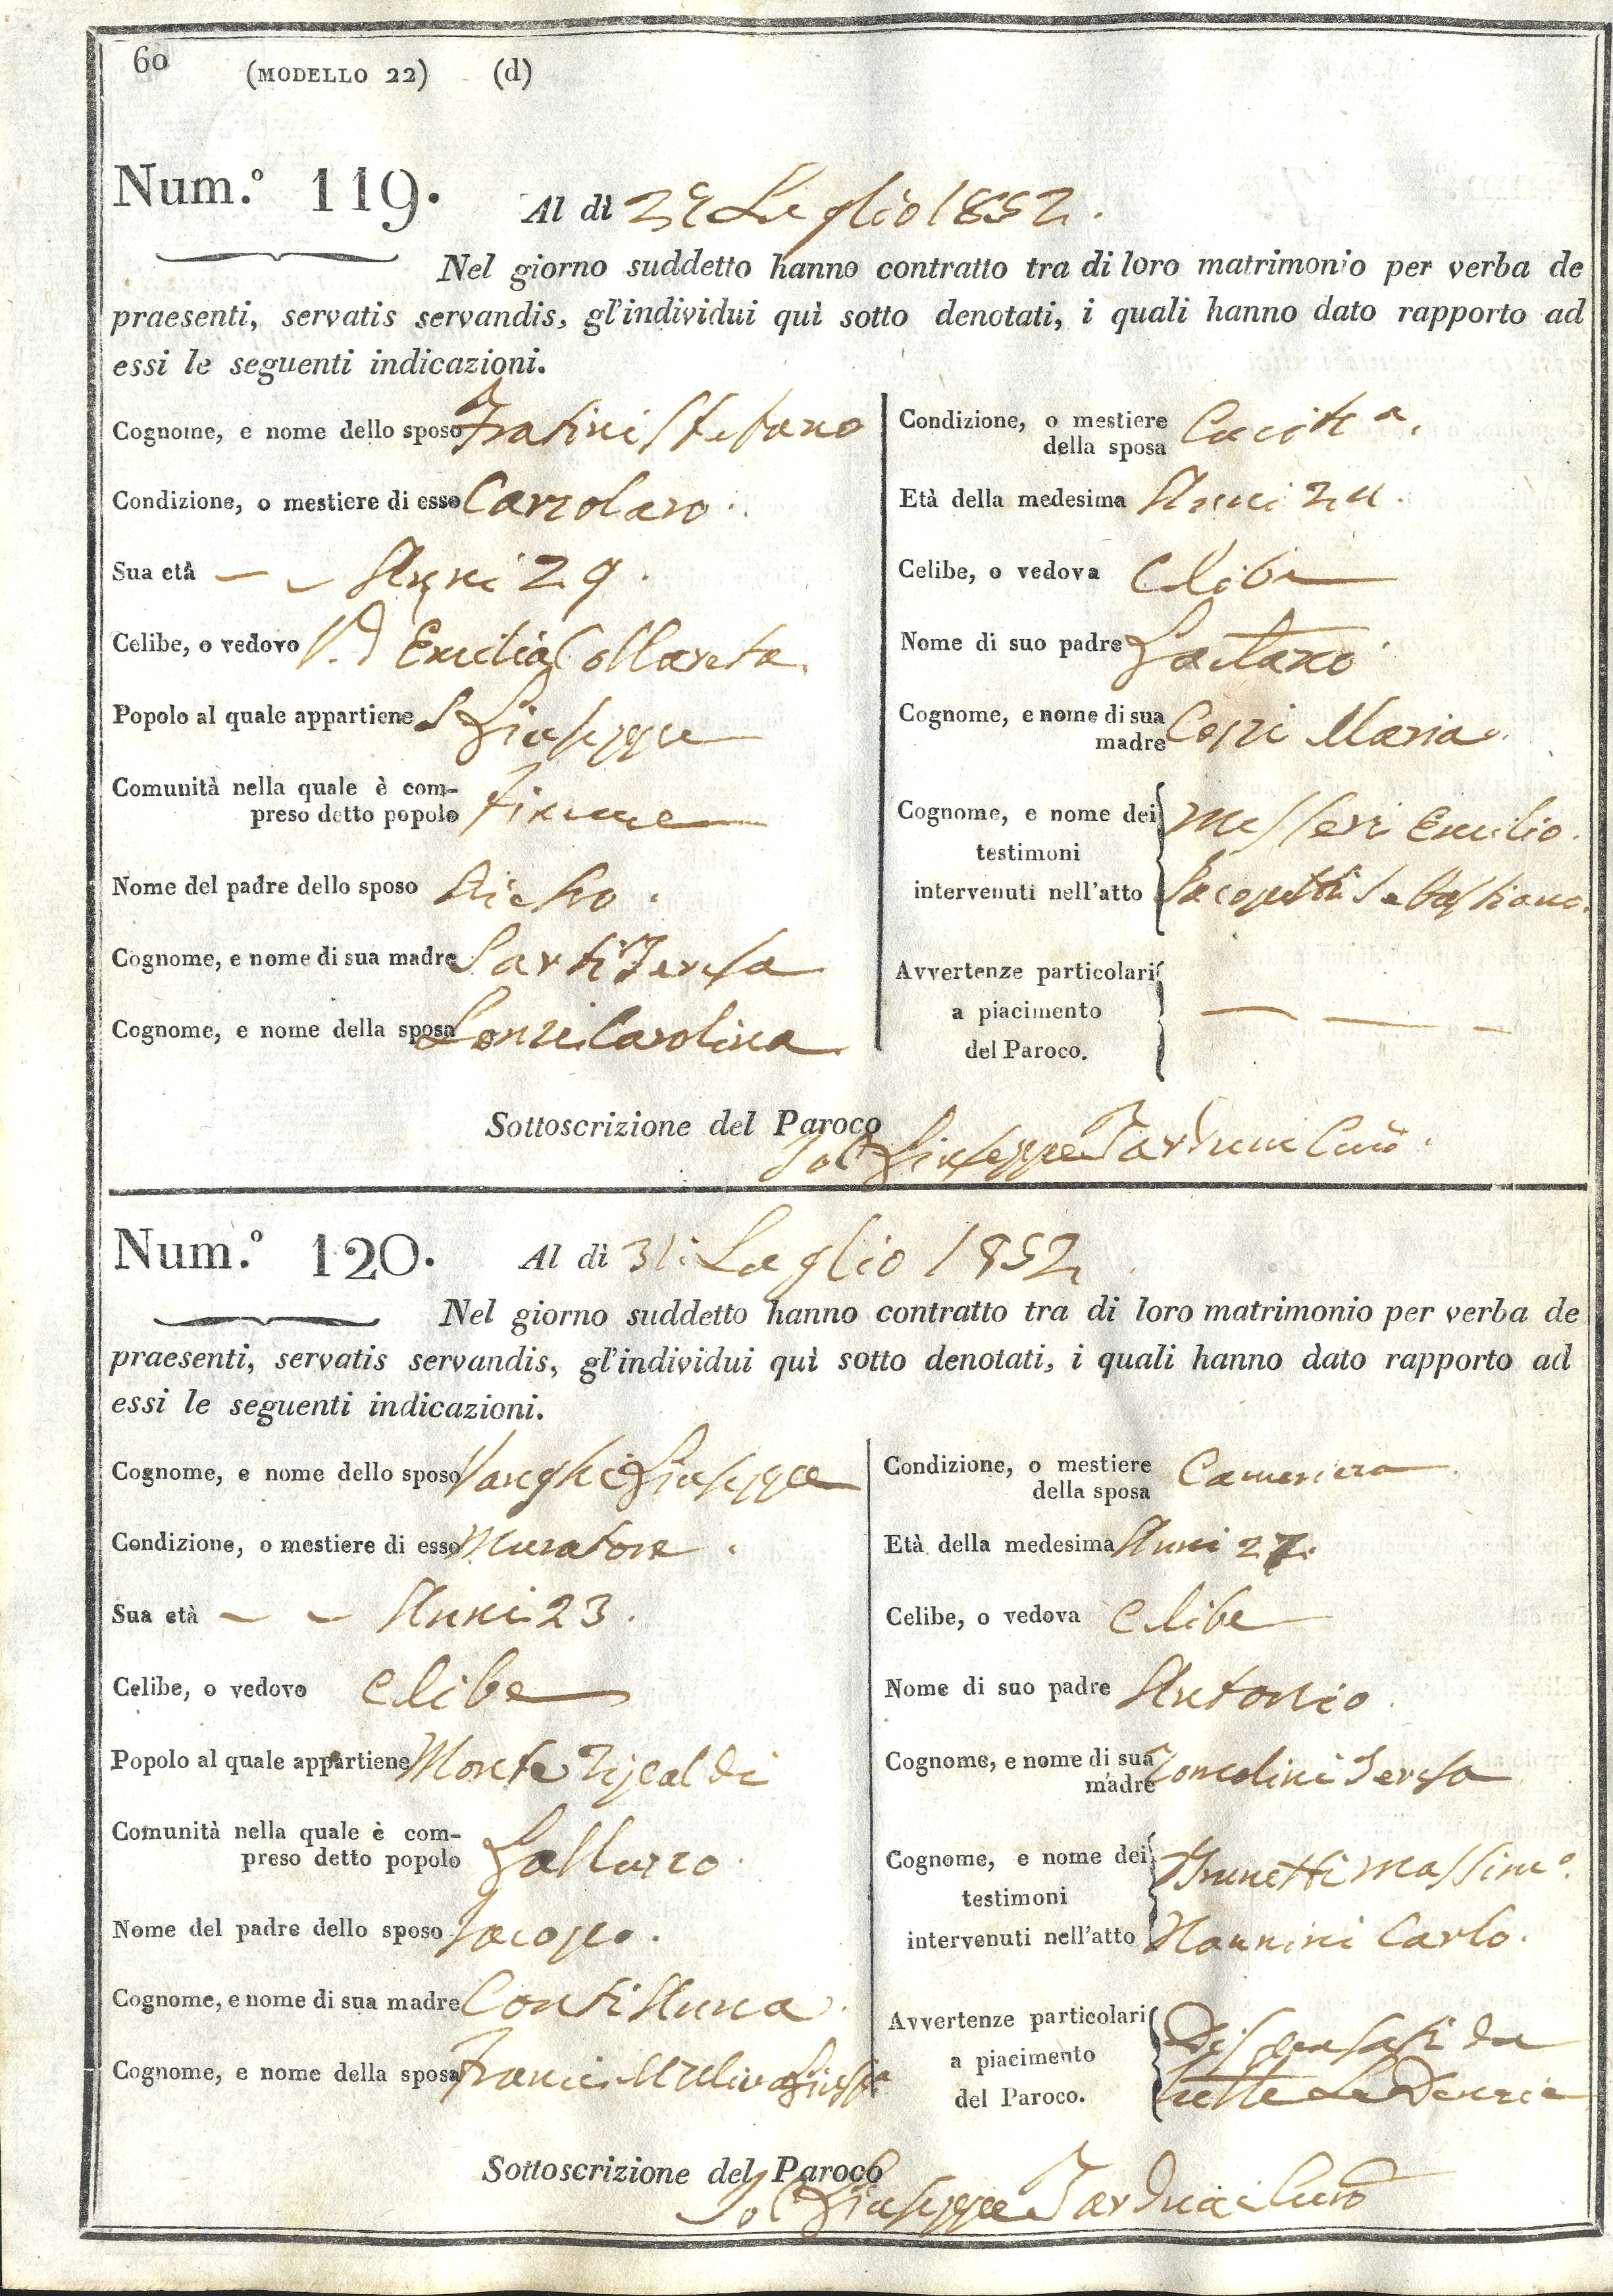 60 (MODELLO 22) (d)
Num.º 119. Al dì 29 Luglio 1852.
Nel giorno suddetto hanno contratto tra di loro matrimonio per verba de
praesenti, servatis servandis, gl'individui quì sotto denotati, i quali hanno dato rapporto ad
essi le seguenti indicazioni.
Cognome, e nome dello sposo Fratini Stefano
Condizione, o mestiere di esso Carzolaro.
Sua età Anni 29.
Celibe, o vedovo V. d Emilia Collareta.
Popolo al quale appartiene S Giuseppe
Comunità nella quale è com-
preso detto popolo Firenze
Nome del padre dello sposo
Cognome, e nome di sua madre Sarti Teresa
Cognome, e nome della sposa Lenzi Carolina
Condizione, o mestiere
della sposa Cucitª.
Età della medesima Anni 24.
Celibe, o vedova Celibe
Nome di suo padre Gaetano
Cognome, e nome di sua
madre Maria.
Cognome, e nome dei Messeri Emilio.
testimoni
intervenuti nell'atto Jacopetti Sebastiano.
Avvertenze particolari
a piacimento
del Paroco.
Sottoscrizione del Paroco Giuseppe Tarduci Curº.
Num.º 120. Al dì 31: Luglio 1852
Nel giorno suddetto hanno contratto tra di loro matrimonio per verba de
praesenti, servatis servandis, gl'individui quì sotto denotati, i quali hanno dato rapporto ad
essi le seguenti indicazioni.
Cognome, e nome dello sposo Vanghi Giuseppe
Condizione, o mestiere di esso Muratore.
Sua età Anni 23.
Celibe, o vedovo Celibe
Popolo al quale appartiene Monte Ripaldi
Comunità nella quale è com-
preso detto popolo Galluzzo.
Nome del padre dello sposo Jacopo.
Cognome, e nome di sua madre Conti Anna.
Cognome, e nome della sposa Franci Giuspª
Condizione, o mestiere
della sposa Cameriera
Età della medesima Anni 27.
Celibe, o vedova Celibe
Nome di suo padre Antonio
Cognome, e nome di sua
madre Teresa
Cognome, e nome dei Brunetti Massimº.
testimoni
intervenuti nell'atto Nannini Carlo.
Avvertenze particolari Dispensati da
a piacimento
del Paroco. tutte Le Denzie
Sottoscrizione del Paroco Giuseppe Tarduci Curº